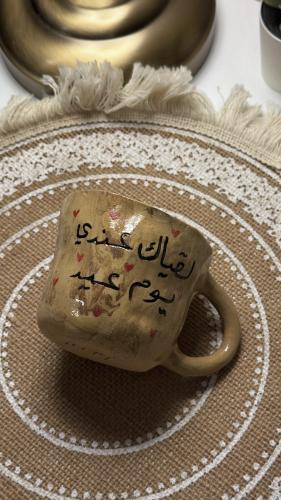 لقياك عندي
يوم عيد